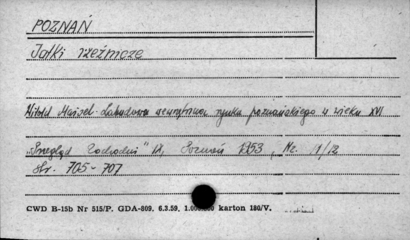 POZNAŃ
Jatki rzeźnicze
Witold Maisel: Zabudowa wewnętrzna rynku poznańskiego w wieku XVI
"Przegląd Zachodni" IX, Poznań 1953, Nr. 11/12
str. 705-707
CWD B-15b Nr 515/P. GDA-809. 6.3.59. karton 180/V.